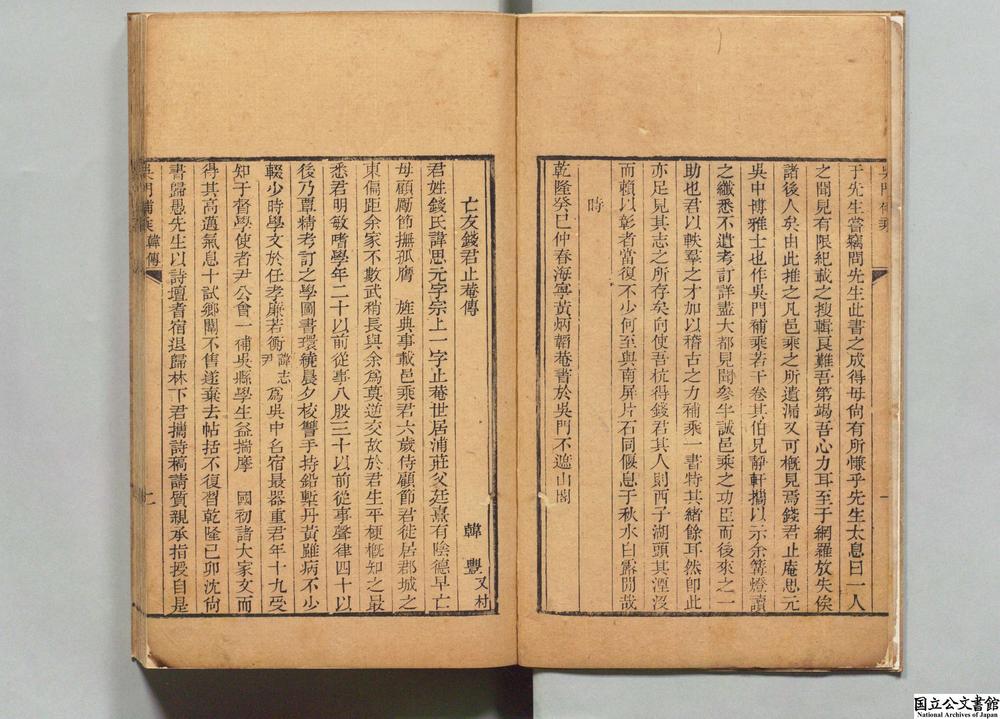 于先生嘗竊問先生此書之成得毋尙有所慊乎先生太息曰一人
之聞見有限紀載之搜輯良難吾第竭吾心力耳至于網羅放失俟
諸後人矣由此推之凡邑乘之所遺漏又可槪見焉錢君止庵思元
吳中博雅士也作吳門補乘若干卷其伯兄靜軒攜以示余篝燈讀
之纖悉不遺考訂詳盡大都見聞參半誠邑乘之功臣而後來之一
助也君以軼羣之才加以稽古之力補乘一書特其緖餘耳然卽此
亦足見其志之所存矣向使吾杭得錢君其人則西子湖頭其湮沒
而賴以彰者當復不少何至與南屏片石同偃息于秋水白露閒哉
時
乾隆癸巳仲春海寧黃炳韜菴書於吳門不遮山閣
亡友錢君止菴傳
韓豐又村
君姓錢氏諱思元字宗上一字止菴世居浦莊父廷熹有陰德早亡
母顧勵節撫孤膺 旌典事載邑乘君六歲侍顧節君徙居郡城之
東偏距余家不數武稍長與余爲莫逆交故於君生平梗槪知之最
悉君明敏嗜學年二十以前從事八股三十以前從事聲律四十以
後乃覃精考訂之學圖書環繞晨夕校讐手持鉛槧丹黃雖病不少
輟少時學文於任孝廉若衡諱志尹爲吳中名宿最器重君年十九受
知于督學使者尹公會一補吳縣學生益揣摩 國初諸大家文而
得其高邁氣息十試鄉闈不售遂棄去帖括不復習乾隆己卯沈尙
書歸愚先生以詩壇耆宿退歸林下君攜詩稿請質親承指授自是
吳門補乘 韓傳
二
国立公文書館
National Archives of Japan